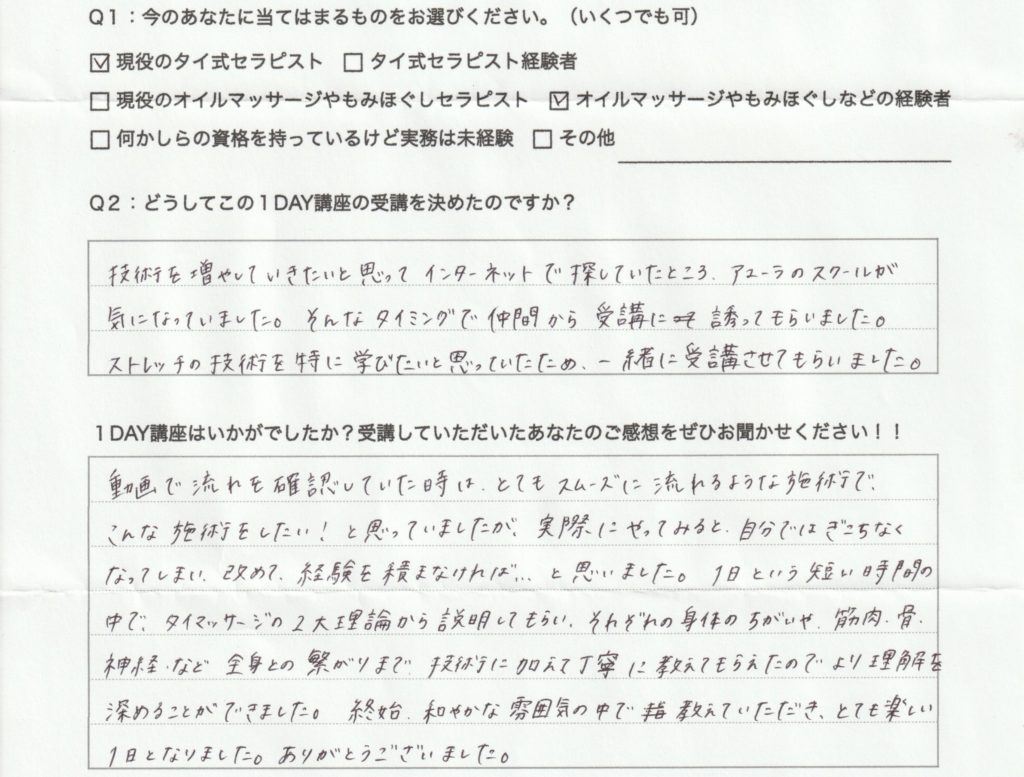 Q1：今のあなたに当てはまるものをお選びください。（いくつでも可）
☑ 現役のタイ式セラピスト □ タイ式セラピスト経験者
□ 現役のオイルマッサージやもみほぐしセラピスト ☑ オイルマッサージやもみほぐしなどの経験者
□ 何かしらの資格を持っているけど実務は未経験 □ その他
Q2：どうしてこの1DAY講座の受講を決めたのですか？
技術を増やしていきたいと思って インターネットで探していたところ、アユーラのスクールが
気になっていました。そんなタイミングで仲間から受講に誘ってもらいました。
ストレッチの技術を特に学びたいと思っていたため、一緒に受講させてもらいました。
1DAY講座はいかがでしたか？受講していただいたあなたのご感想をぜひお聞かせください！！
動画で流れを確認していた時は、とてもスムーズに流れるような施術で、
こんな施術をしたい！と思っていましたが、実際にやってみると、自分ではぎこちなく
なってしまい、改めて、経験を積まなければ… と思いました。1日という短い時間の
中で、タイマッサージの2大理論から説明してもらい、それぞれの身体のちがいや、筋肉・骨・
神経・など全身との繋がりまで、技術に加えて丁寧に教えてもらえたのでより理解を
深めることができました。終始、和やかな雰囲気の中で教えていただき、とても楽しい
1日となりました。ありがとうございました。